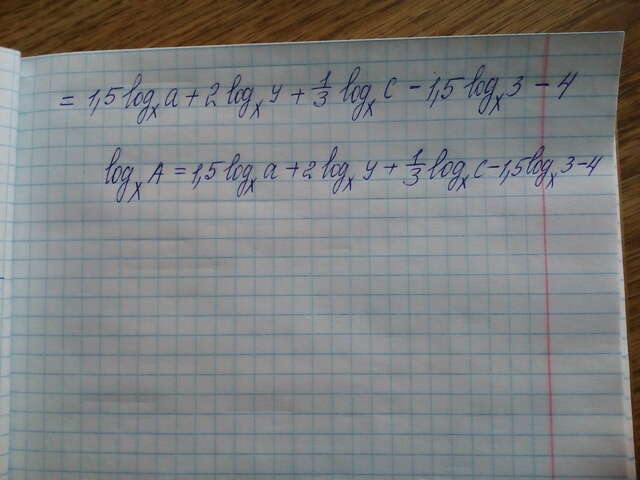 = 1,5 logₓ a + 2 logₓ y + 1/3 logₓ c − 1,5 logₓ 3 − 4
logₓ A = 1,5 logₓ a + 2 logₓ y + 1/3 logₓ c − 1,5 logₓ 3 − 4